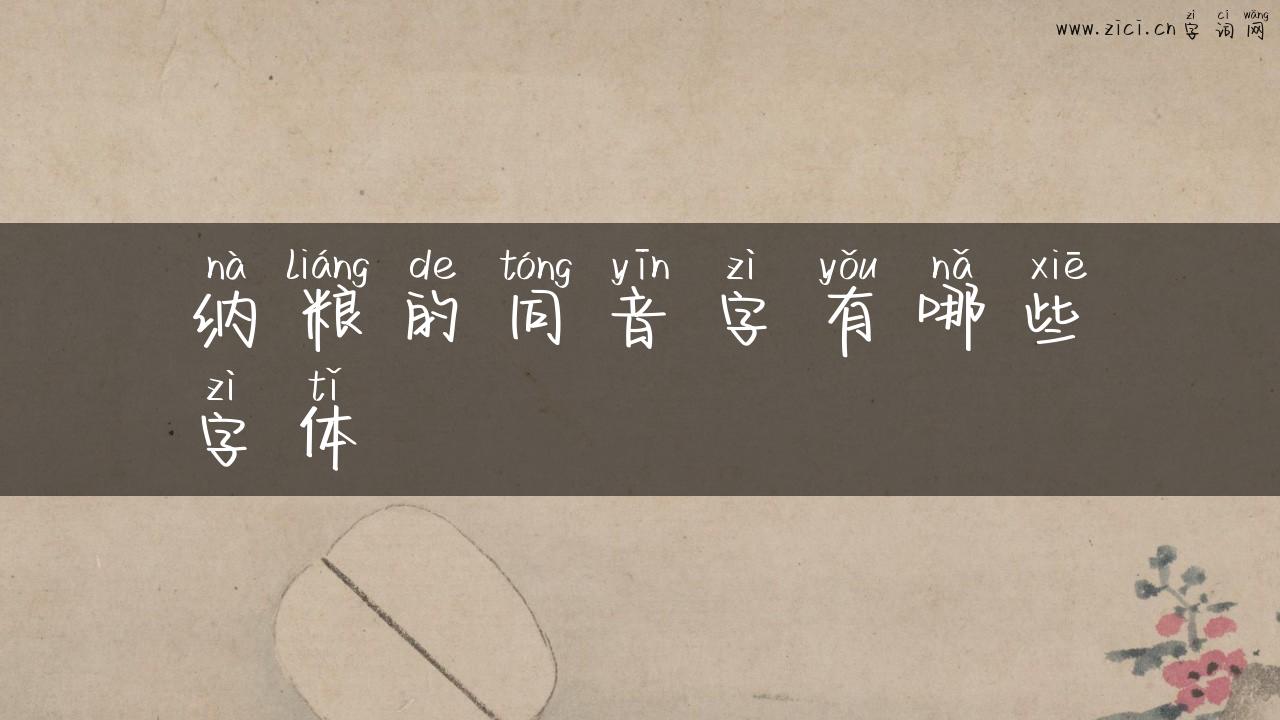 zì cí wǎng
www.zici.cn字词网
nà liáng de tóng yīn zì yǒu nǎ xiē
纳粮的同音字有哪些
zì tǐ
字体